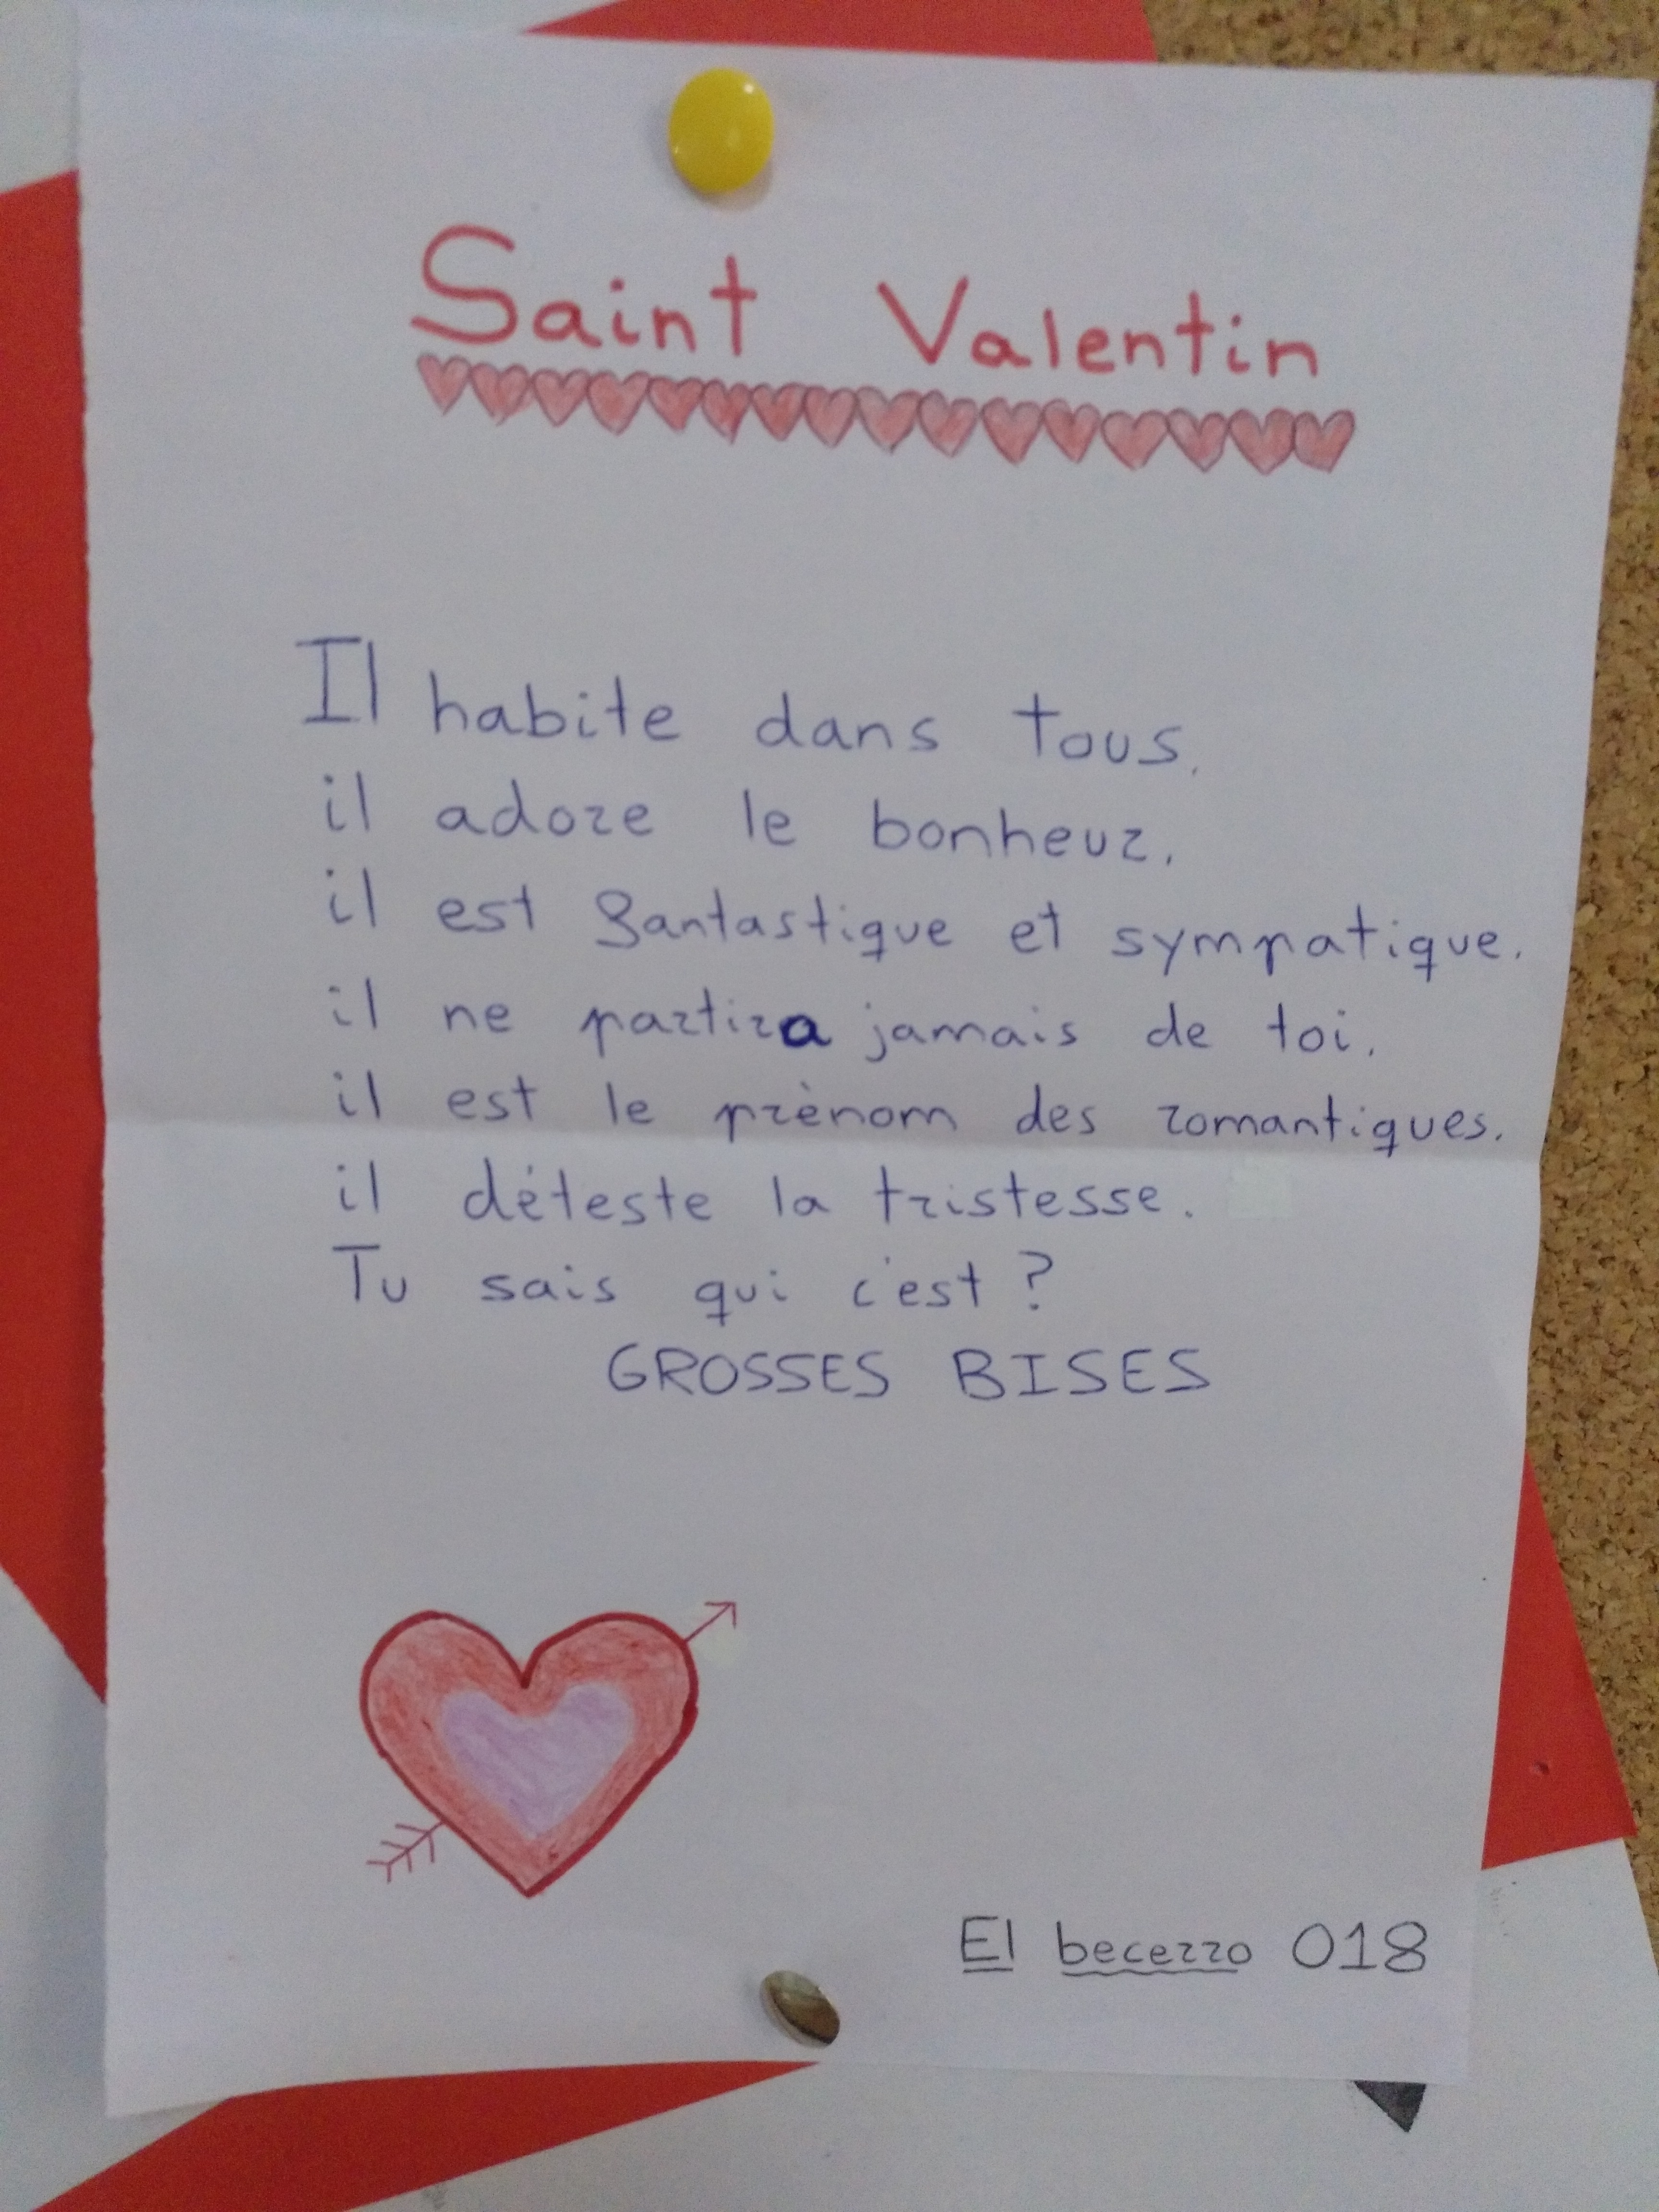 Saint Valentin
Il habite dans tous.
il adore le bonheur.
il est fantastique et sympatique.
il ne partira jamais de toi.
il est le prènom des romantiques.
il déteste la tristesse.
Tu sais qui c'est ?
GROSSES BISES
El becerro 018